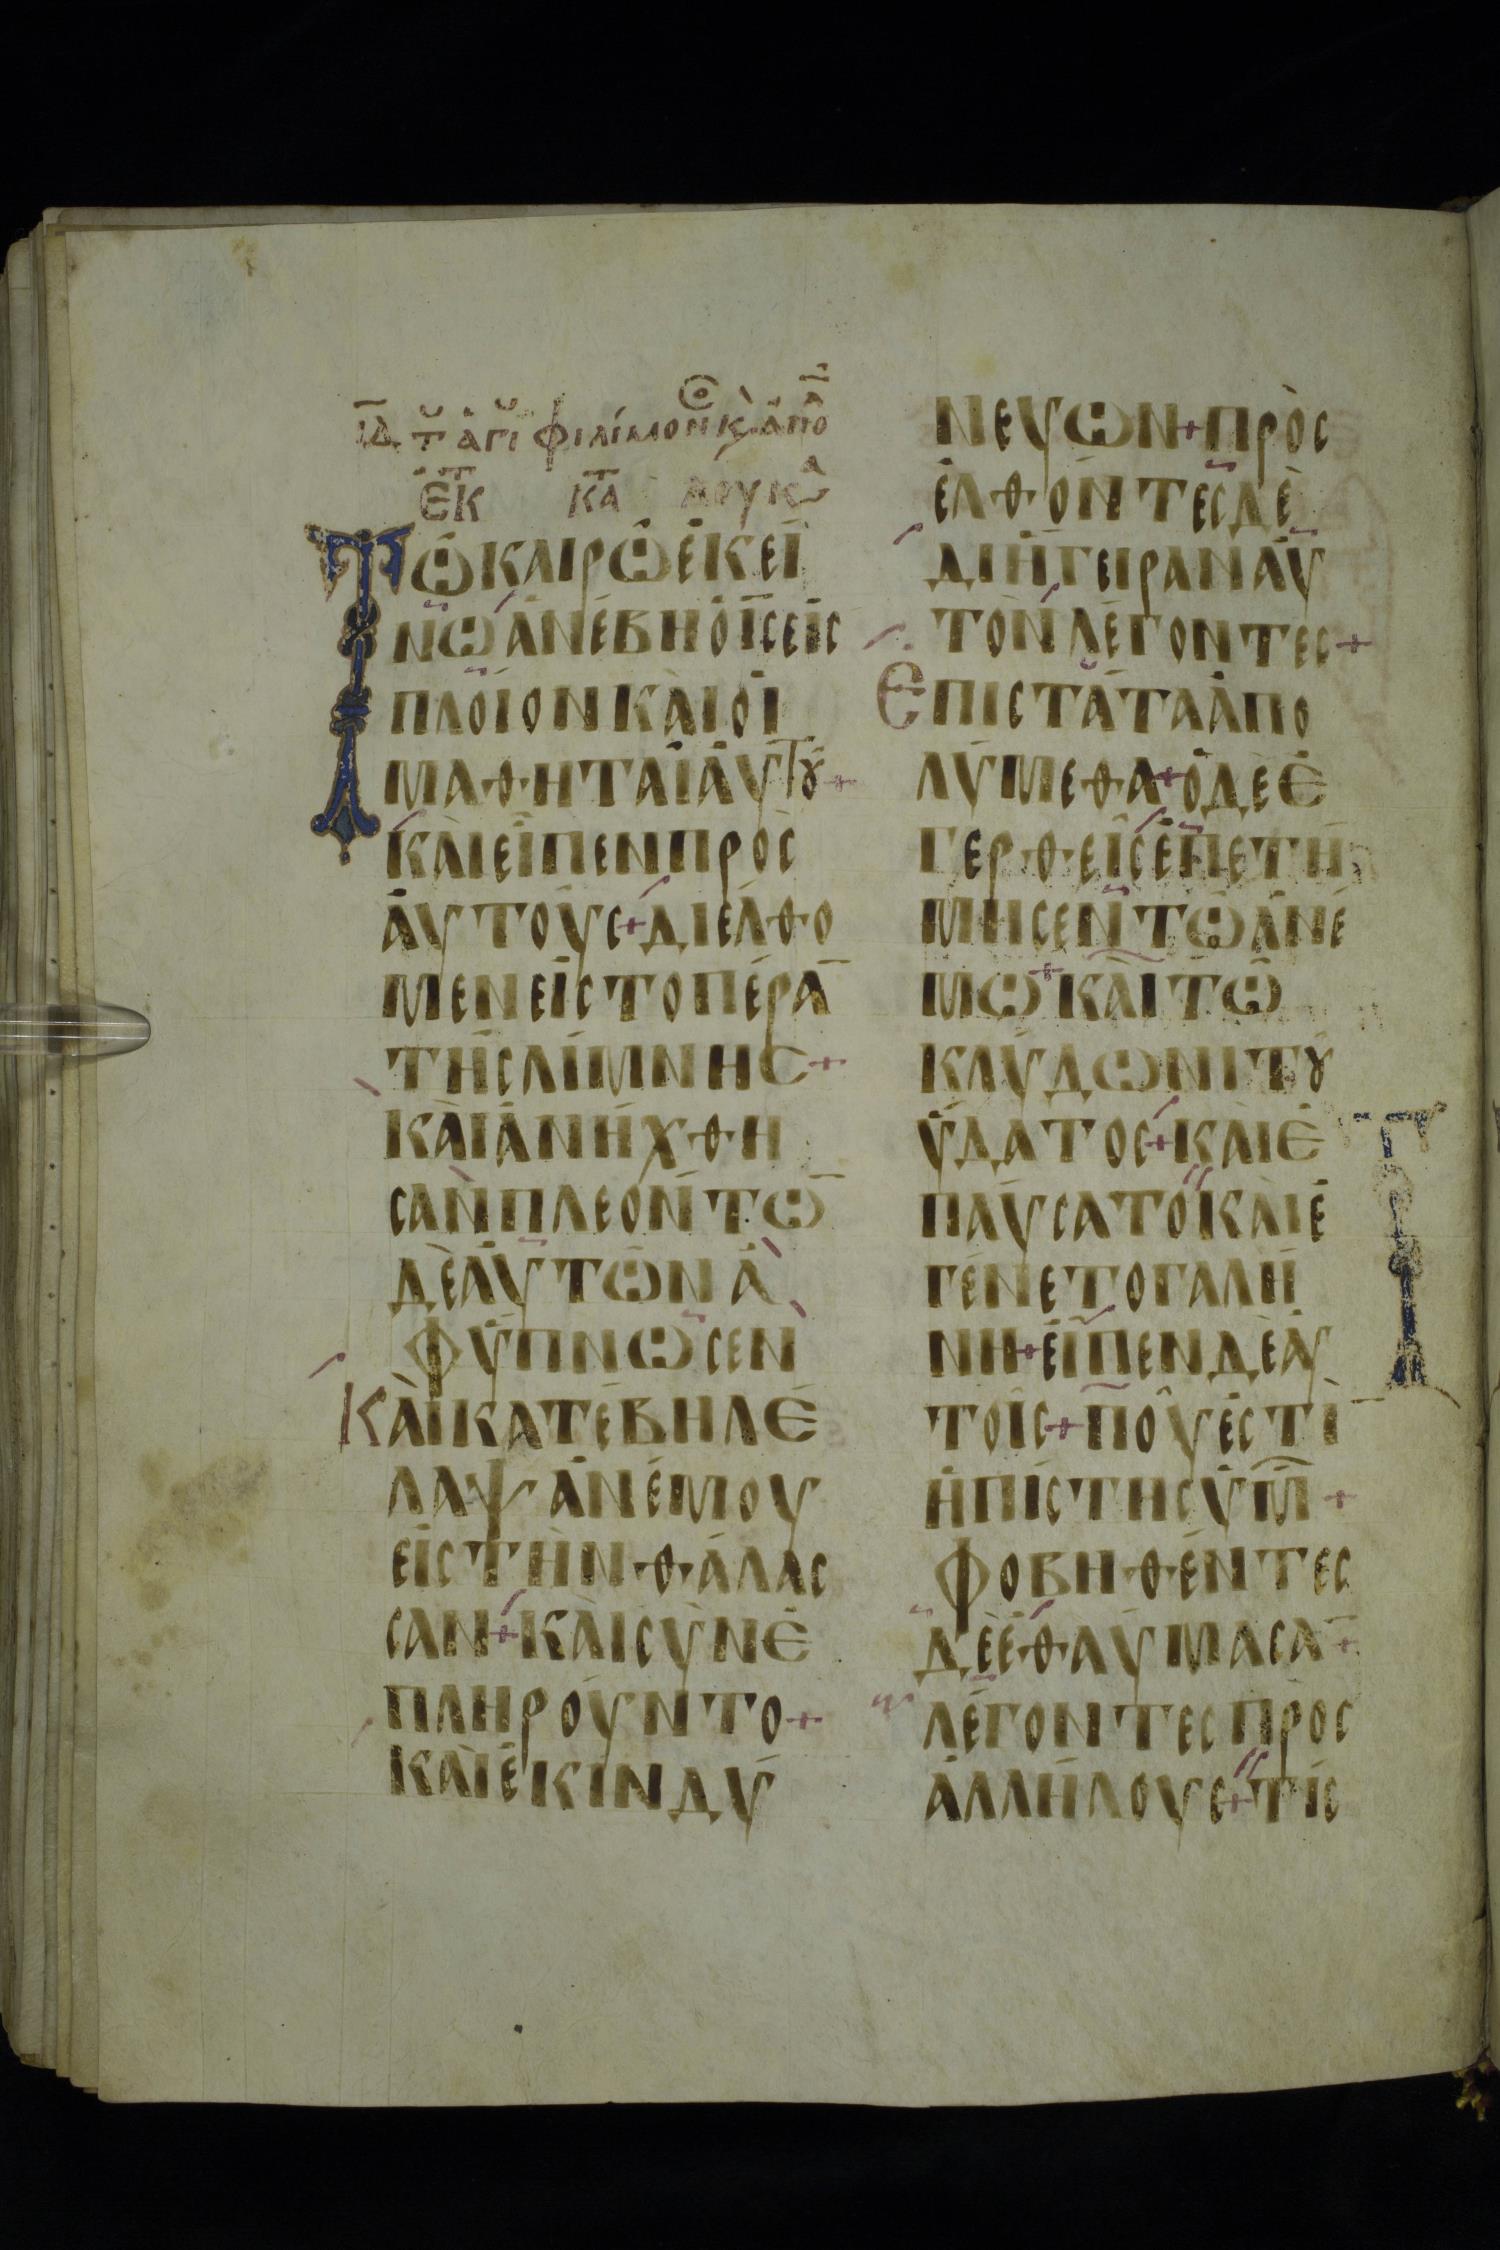 ΙΔ Τ ΑΓΙ ΦΙΛΙΜΟΝΟς Κ ΑΠΟ
ΕΚ ΚΤΑ ΛΟΥΚ
ΤΩ ΚΑΙΡΩ ΕΚΕΙ
ΝΩ ΑΝΕΒΗ Ο ΙΣ ΕΙΣ
ΠΛΟΙΟΝ ΚΑΙ ΟΙ
ΜΑΘΗΤΑΙ ΑΥΤȢ+
ΚΑΙ ΕΙΠΕΝ ΠΡΟΣ
ΑΥΤΟΥΣ+ΔΙΕΛΘΟ
ΜΕΝ ΕΙΣ ΤΟ ΠΕΡΑ̅
ΤΗΣ ΛΙΜΝΗΣ+
ΚΑΙ ΑΝΗΧΘΗ
ΣΑΝ ΠΛΕΟΝΤΩ̅
ΔΕ ΑΥΤΩΝ Α
ΦΥΠΝΩΣΕΝ
ΚΑΙ ΚΑΤΕΒΗ ΛΕ
ΛΑΨ ΑΝΕΜΟΥ
ΕΙΣ ΤΗΝ ΘΑΛΑΣ
ΣΑΝ+ΚΑΙ ΣΥΝΕ
ΠΛΗΡΟΥΝΤΟ+
ΚΑΙ ΕΚΙΝΔΥ
ΝΕΥΩΝ+ΠΡΟΣ
ΕΛΘΟΝΤΕΣ ΔΕ
ΔΙΗΓΕΙΡΑΝ ΑΥ
ΤΟΝ ΛΕΓΟΝΤΕΣ+
ΕΠΙΣΤΑΤΑ ΑΠΟ
ΛΥΜΕΘΑ+Ο ΔΕ Ε
ΓΕΡΘΕΙΣ ΕΠΕΤΗ
ΜΗΣΕΝ ΤΩ ΑΝΕ
ΜΩ+ΚΑΙ ΤΩ
ΚΛΥΔΩΝΙ ΤȢ
ΥΔΑΤΟΣ+ΚΑΙ Ε
ΠΑΥΣΑΤΟ ΚΑΙ Ε
ΓΕΝΕΤΟ ΓΑΛΗ
ΝΗ+ΕΙΠΕΝ ΔΕ ΑΥ
ΤΟΙΣ+ΠΟΥ ΕΣΤΙ̅
Η ΠΙΣΤΗΣ ΥΜ̅+
ΦΟΒΗΘΕΝΤΕΣ
ΔΕ ΕΘΑΥΜΑΣΑ̅+
ΛΕΓΟΝΤΕΣ ΠΡΟΣ
ΑΛΛΗΛΟΥΣ+ΤΙΣ